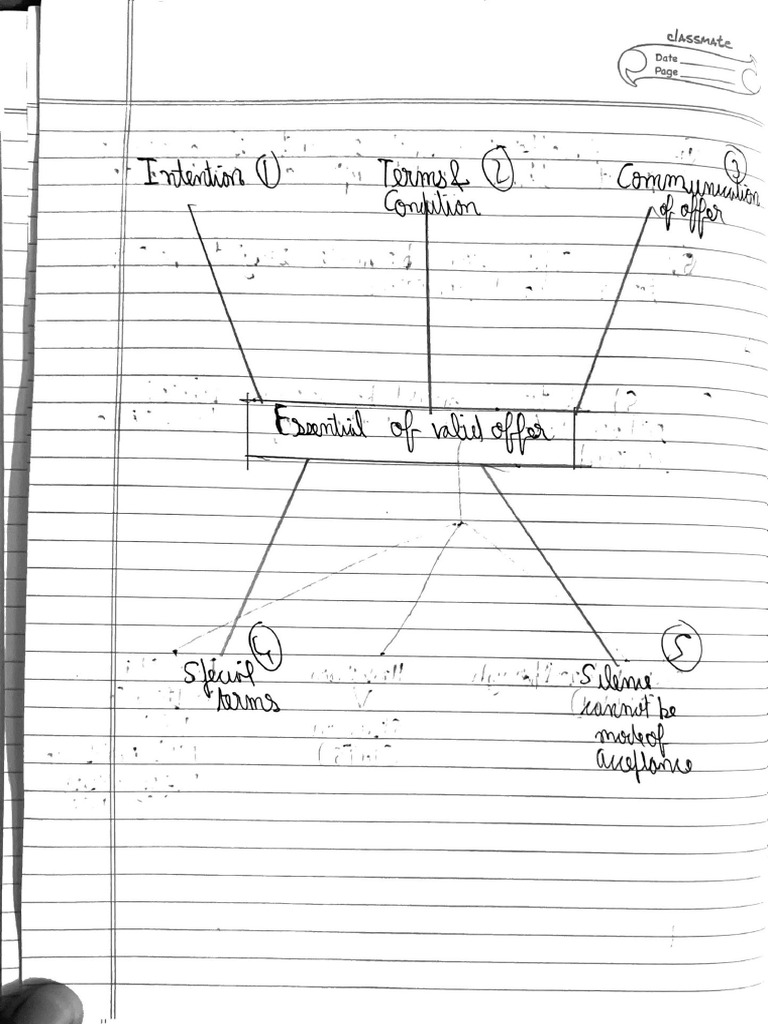 classmate
Date
Page
Intention ①
Terms & ②
Condition
③
Communication
of offer
Essential of valid offer
④
Special
terms
⑤
Silence
(cannot be
mode of
acceptance